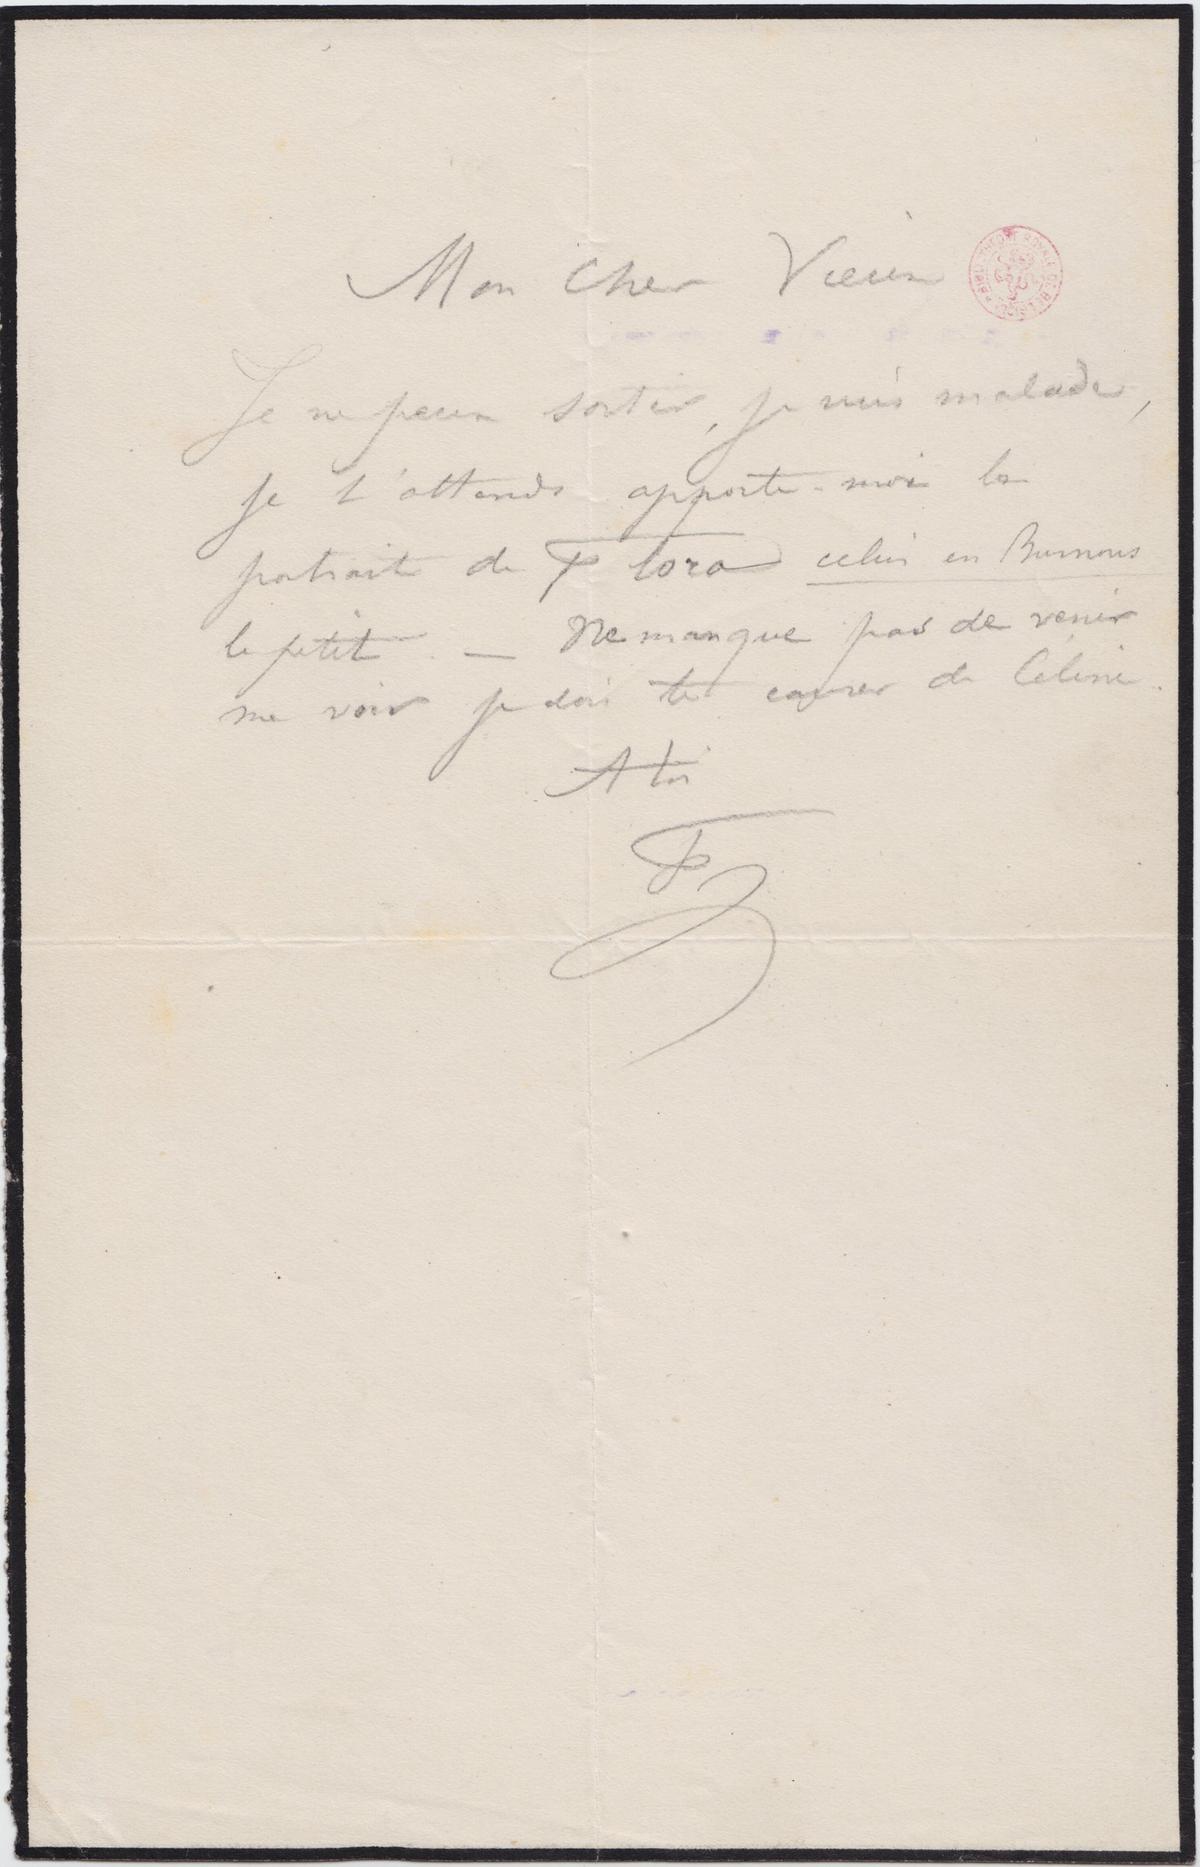 Mon Cher Vieux
BIBLIOTHÈQUE ROYALE DE BELGIQUE
Je ne peux sortir, je suis malade,
je t'attends apporte-moi le
portrait de Flora celui en Burnous
le petit — Ne manque pas de venir
me voir je dois te causer de Céline.
A toi
F